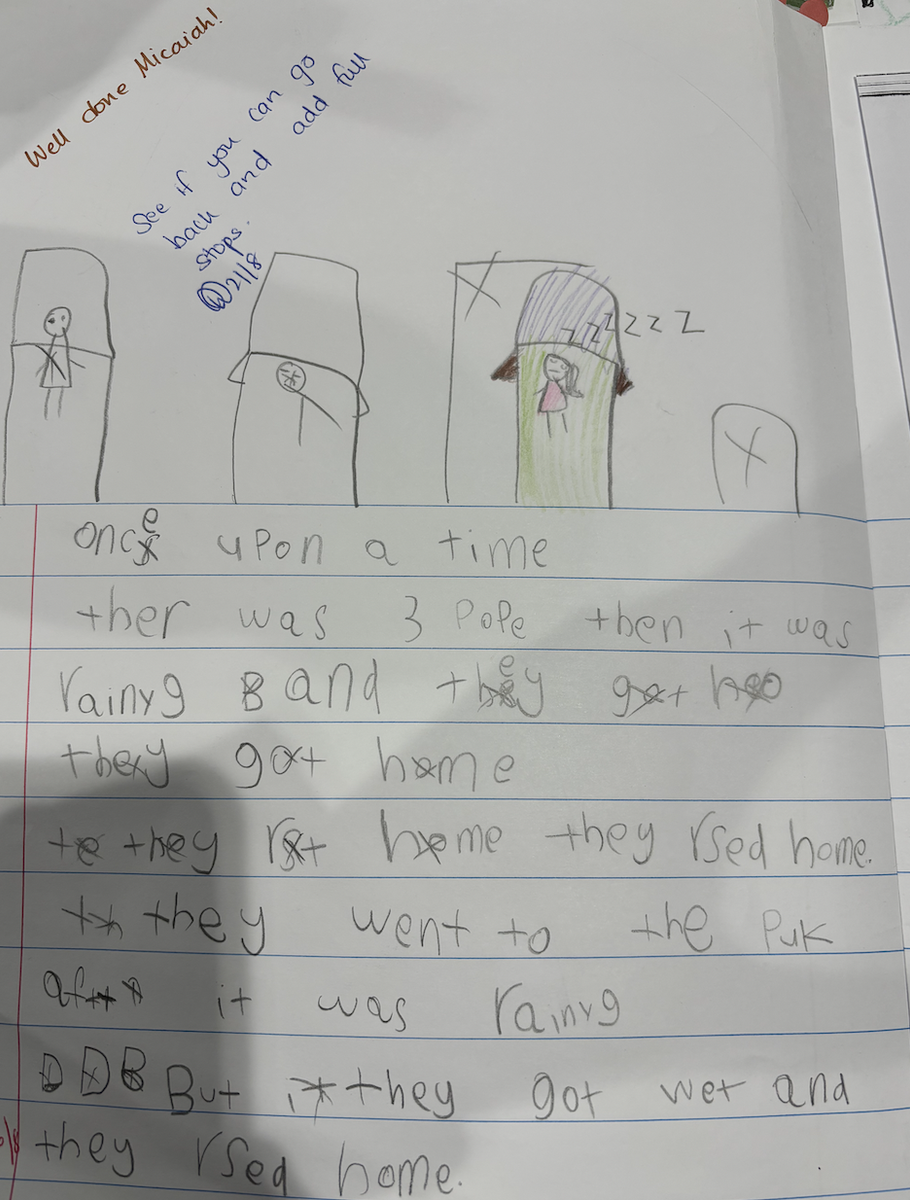 Well done Micaiah!
See if you can go
back and add full
stops.
21/8
zzzzzz
once upon a time
ther was 3 pope then it was
rainyg B and they got
they got home
they home they rsed home.
they went to the puk
it was rainyg
D D B But they got wet and
they rsed home.